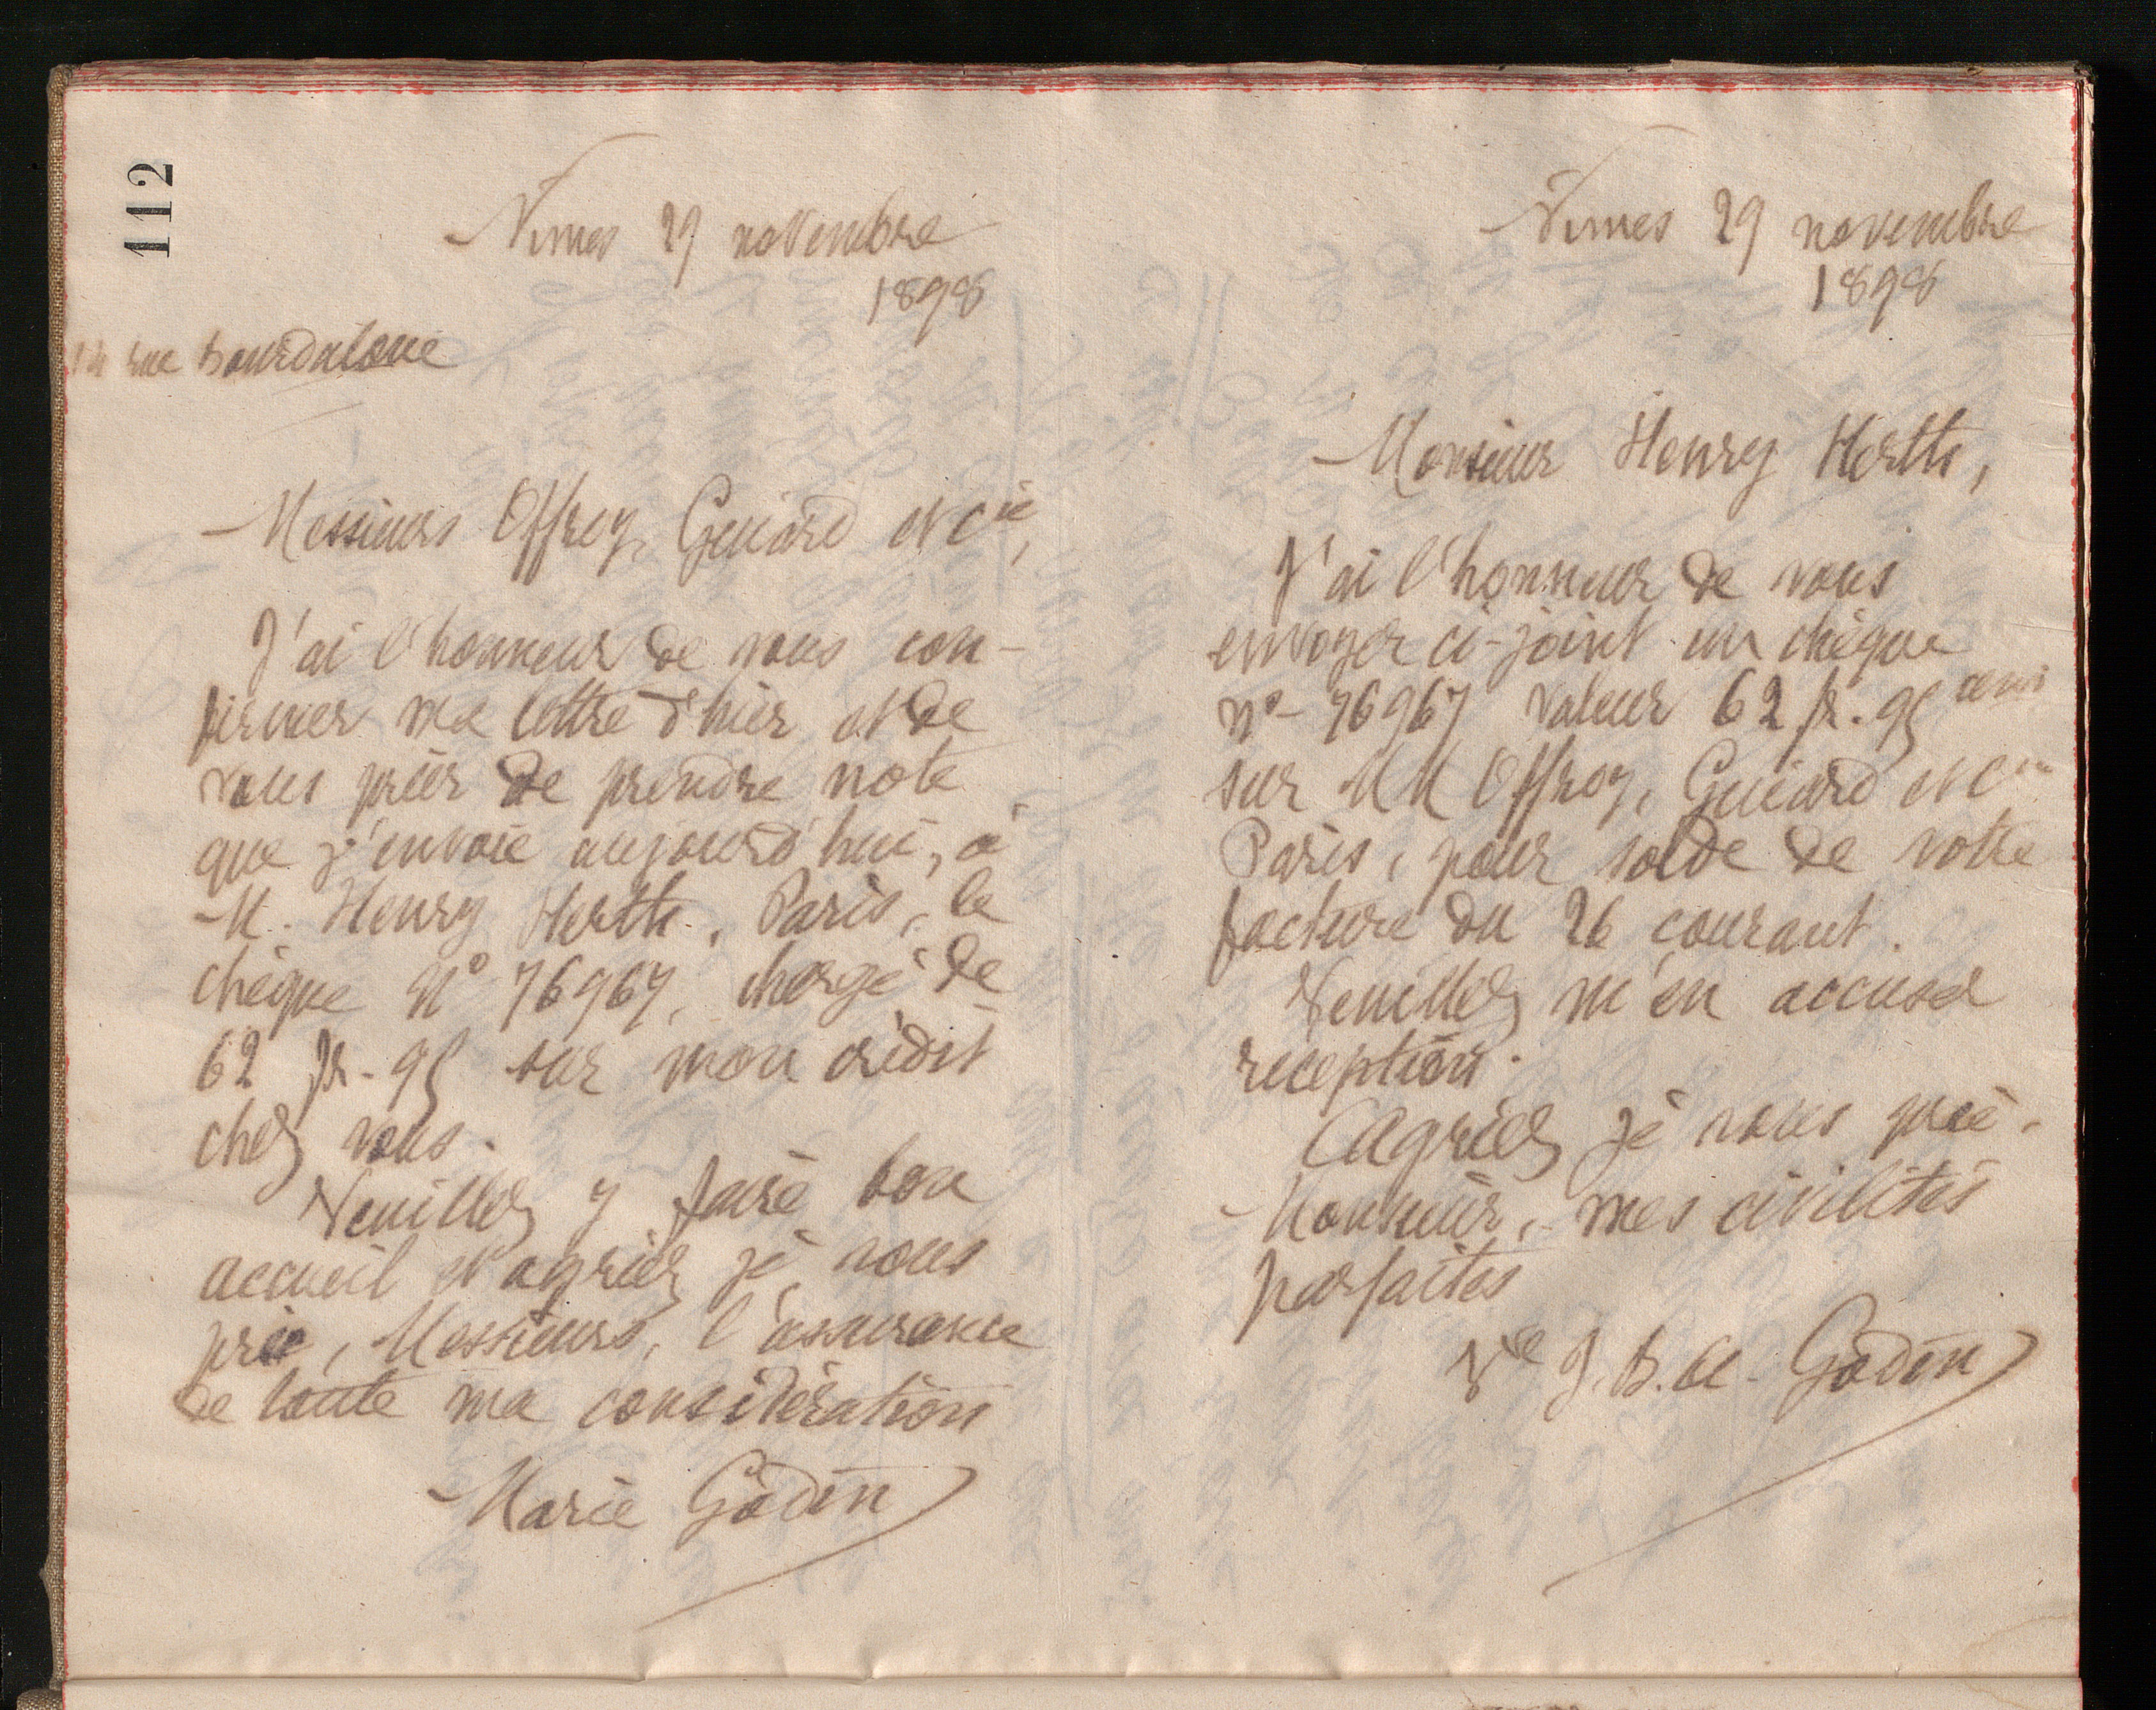 112
Nimes 29 novembre
1898
14 rue Bourdaloue
Messieurs Offroy, Guiard et Cie,
J'ai l'honneur de vous con-
firmer ma lettre d'hier et de
vous prier de prendre note
que j'envoie aujourd'hui, à
M. Henry Herth, Paris, le
chèque N° 76967, chargé de
62 fr. 95 sur mon crédit
chez vous.
Veuillez y faire bon
accueil et agréer, je vous
prie, Messieurs, l'assurance
de toute ma considération
Marie Godin
Nimes 29 novembre
1898
Monsieur Henry Herth,
J'ai l'honneur de vous
envoyer ci-joint un chèque
n° 76967 valeur 62 fr. 95
sur MM Offroy, Guiard et Cie
Paris, pour solde de votre
facture du 26 courant.
Veuillez m'en accuser
reception.
Agréez je vous prie,
Monsieur, mes civilités
parfaites
Vve J. B. A. Godin